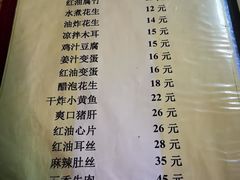 红油腐竹 12 元
水煮花生 12 元
油炸花生 14 元
凉拌木耳 15 元
鸡汁豆腐 15 元
姜汁变蛋 16 元
红油变蛋 16 元
醋泡花生 18 元
干炸小黄鱼 22 元
爽口猪肝 26 元
红油心片 26 元
红油耳丝 28 元
麻辣肚丝 35 元
五香牛肉 45 元